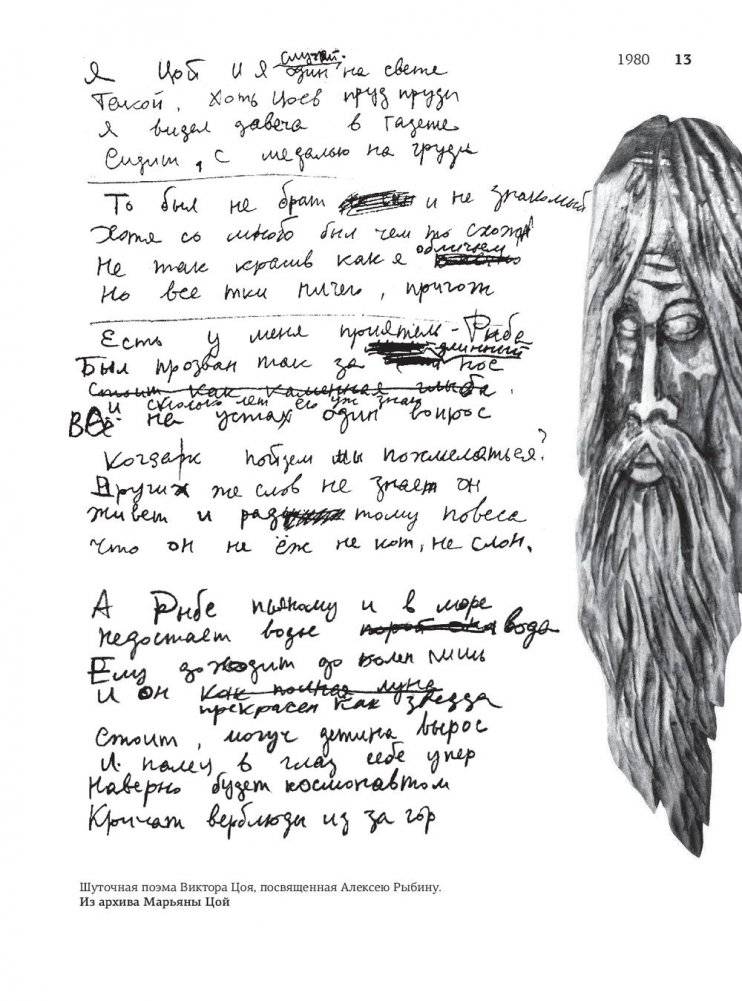 1980 13
Я Цой и я случай. один на свете
Такой, хоть Цоев пруд пруди
Я видел давеча в газете
Сидит, с медалью на груди
То был не брат и не знакомый
Хотя со много был чем то схож
Не так красив как я обличьем
Но все тки ничего, пригож
Есть у меня приятель - Рыба
Был прозван так за длинный нос
стоит как каменная глыба.
и сколько лет его уж знаю
Всё на устах один вопрос
Когда рк пойдем мы похмеляться?
Других же слов не знает он
живет и рад тому повеса
Что он не ёж не кот, не слон.
А Рыбе пьяному и в море
недостает воды вода
Ему доходит до колен лишь
И он как полная луна
прекрасен как звезда
Стоит, могуч детина вырос
И палец в глаз себе упер
Наверно будет космонавтом
Кричат верблюды из за гор
Шуточная поэма Виктора Цоя, посвященная Алексею Рыбину.
Из архива Марьяны Цой